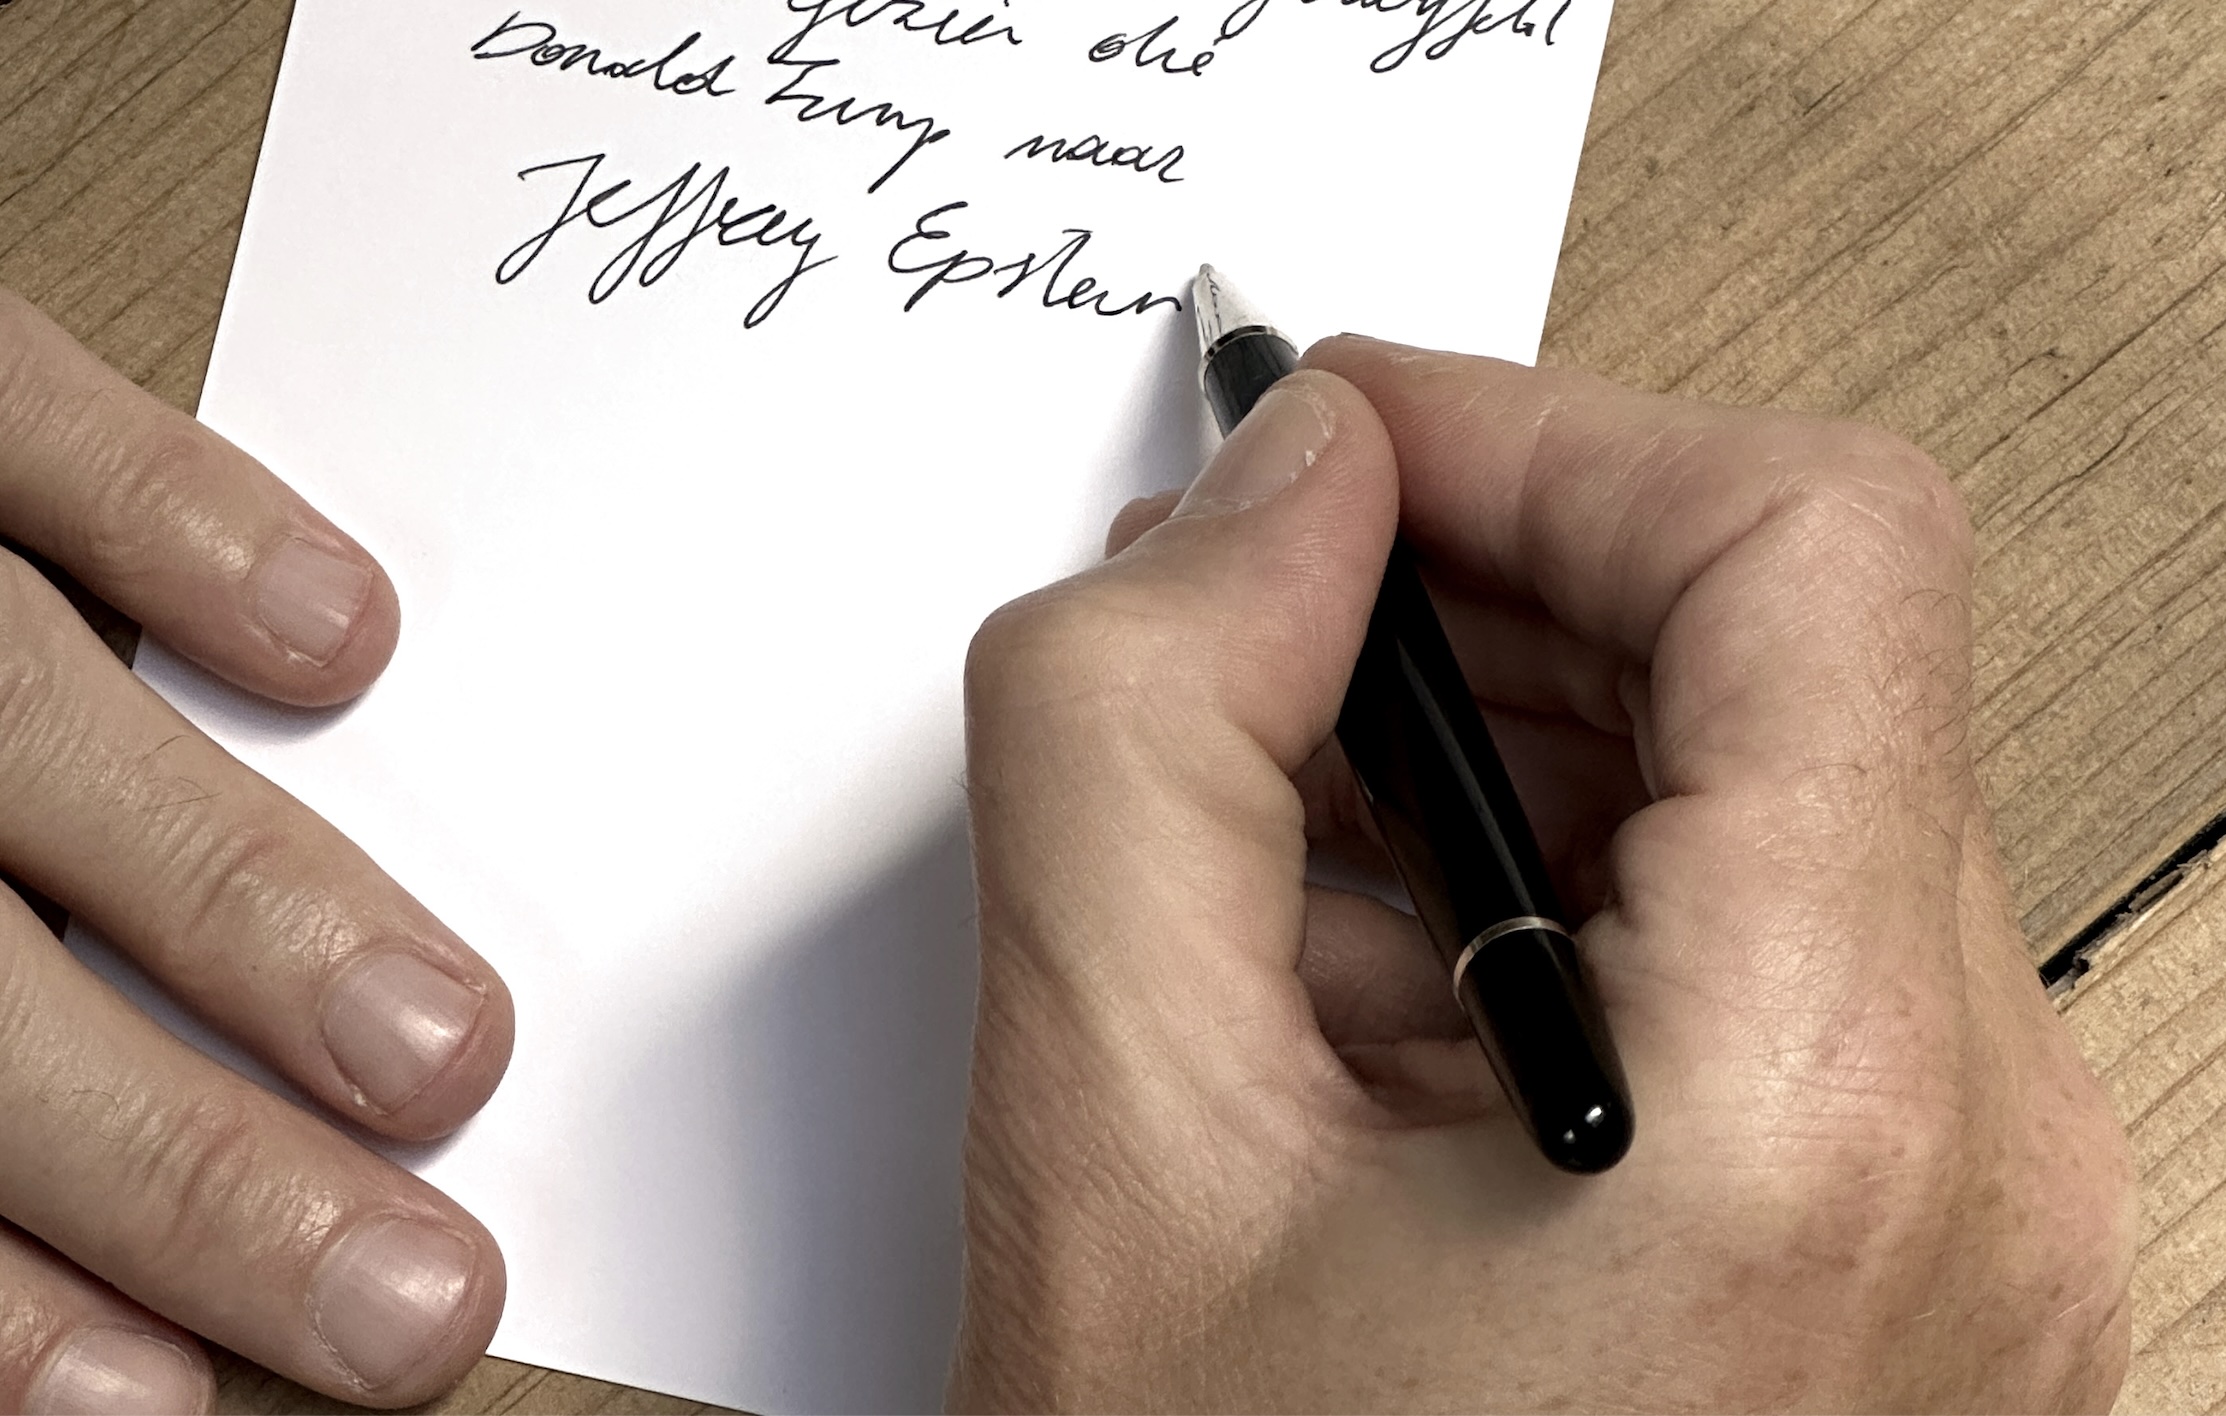 gezien die
Donald Trump naar
Jeffrey Epstein